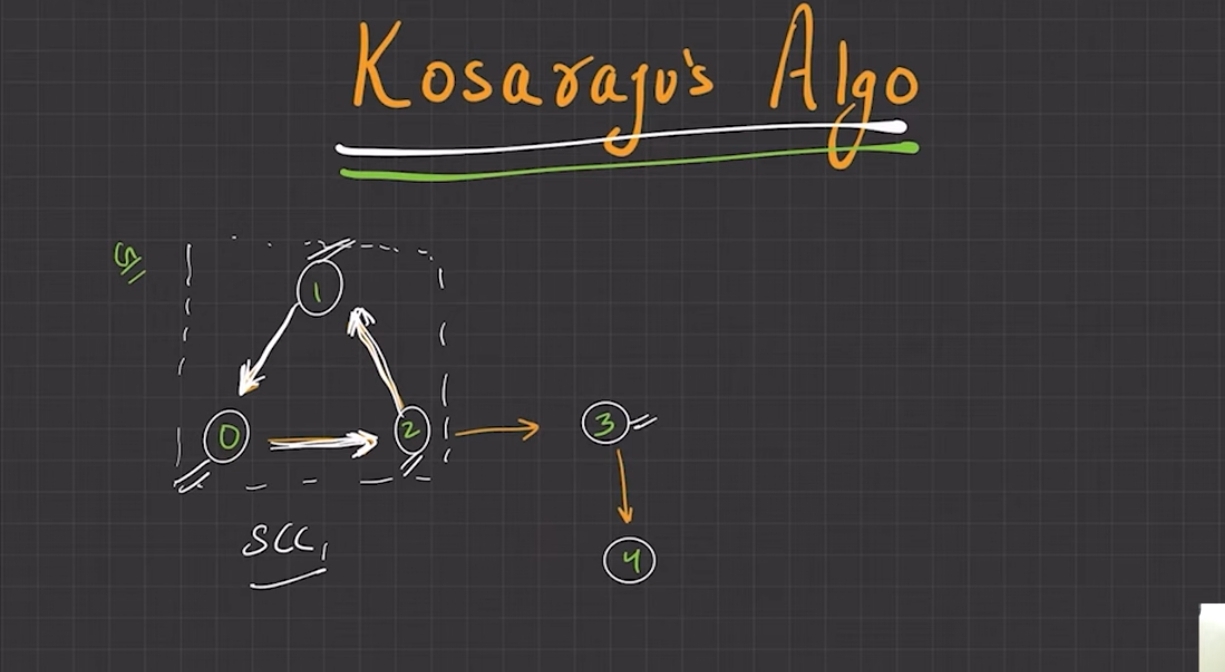 Kosaraju's Algo
1
0
2
3
SCC1
4